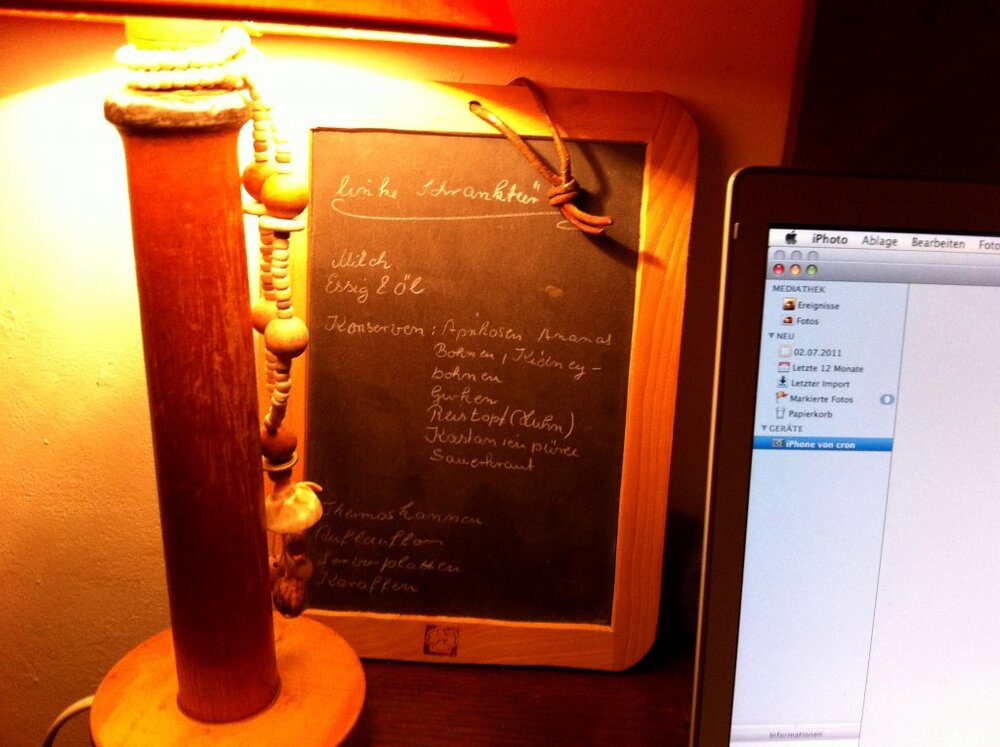 linke Schranktür
Milch
Essig & Öl
Konserven: Aprikosen Ananas
Bohnen, Kidney-
bohnen
Gurken
Reistopf (Huhn)
Kastanienpüree
Sauerkraut
Thermoskannen
Auflaufform
Servierplatten
Karaffen
iPhoto Ablage Bearbeiten Foto
MEDIATHEK
Ereignisse
Fotos
NEU
02.07.2011
Letzte 12 Monate
Letzter Import
Markierte Fotos
Papierkorb
GERÄTE
iPhone von cron
Informationen